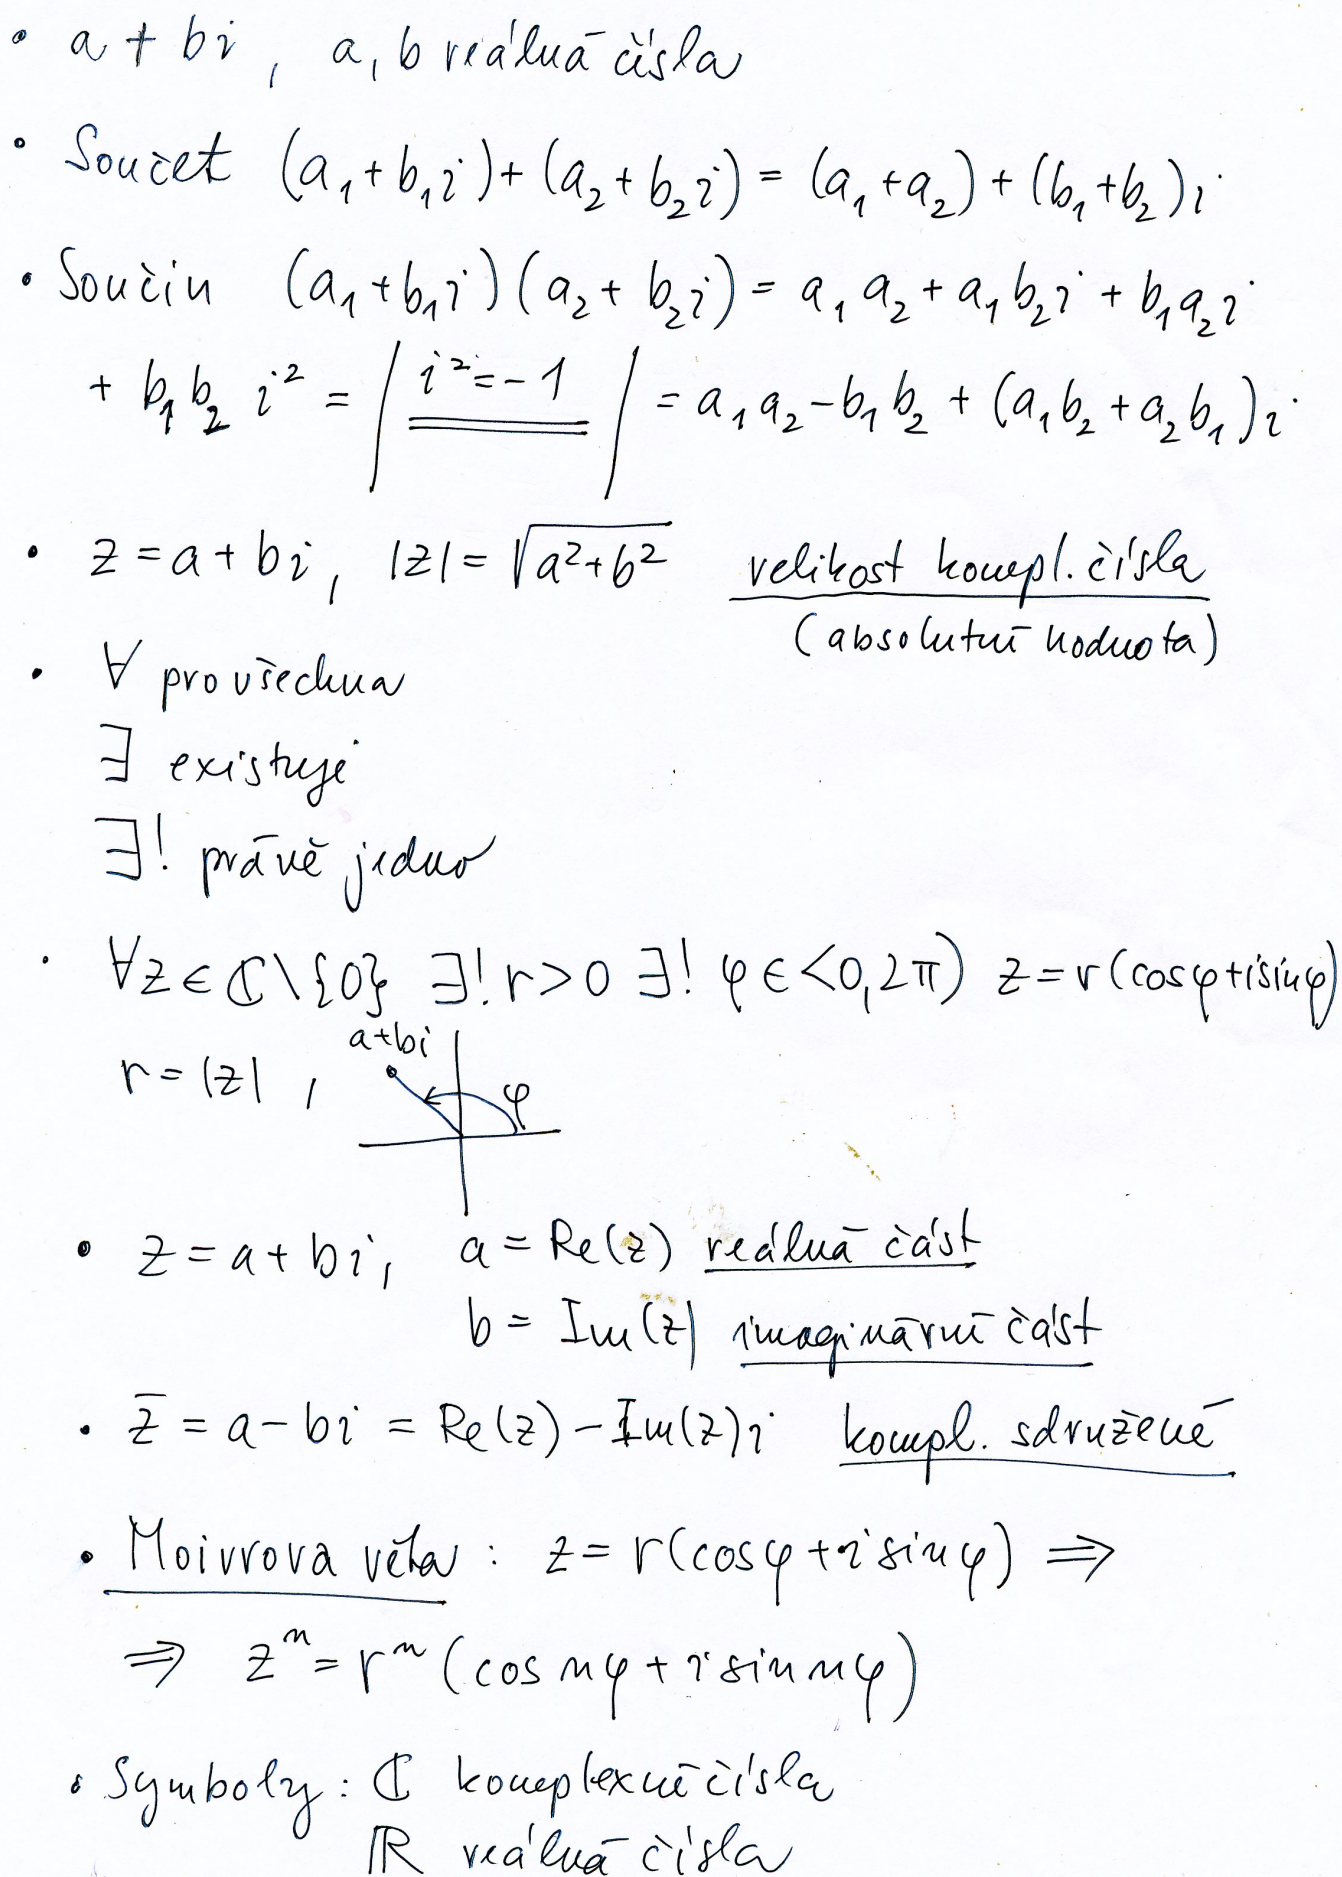 • a + bi, a, b reálná čísla
• Součet (a₁+b₁i)+(a₂+b₂i) = (a₁+a₂)+(b₁+b₂)i
• Součin (a₁+b₁i)(a₂+b₂i) = a₁a₂+a₁b₂i+b₁a₂i
+ b₁b₂ i² = | i²=-1 | = a₁a₂-b₁b₂+(a₁b₂+a₂b₁)i
• z = a + bi, |z| = √(a²+b²) velikost kompl. čísla
(absolutní hodnota)
• ∀ pro všechna
∃ existuje
∃! právě jedno
• ∀z∈ℂ\{0} ∃! r>0 ∃! φ∈<0,2π) z=r(cosφ+isinφ)
a+bi
r = |z|, φ
• z = a + bi, a = Re(z) reálná část
b = Im(z) imaginární část
• z̄ = a-bi = Re(z)-Im(z)i kompl. sdružené
• Moivrova věta: z = r(cosφ+i sinφ) ⇒
⇒ zⁿ = rⁿ(cos nφ + i sin nφ)
• Symboly: ℂ komplexní čísla
ℝ reálná čísla